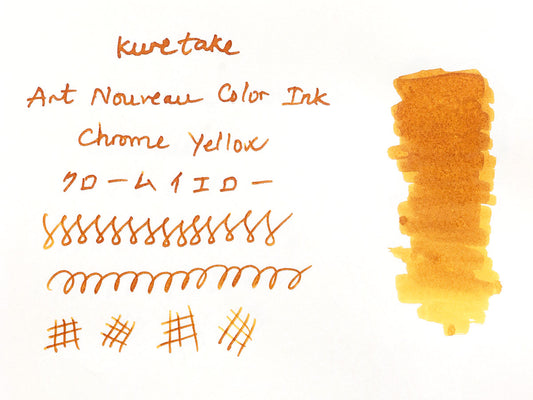 kuretake
Art Nouveau Color Ink
Chrome Yellow
クロームイエロー